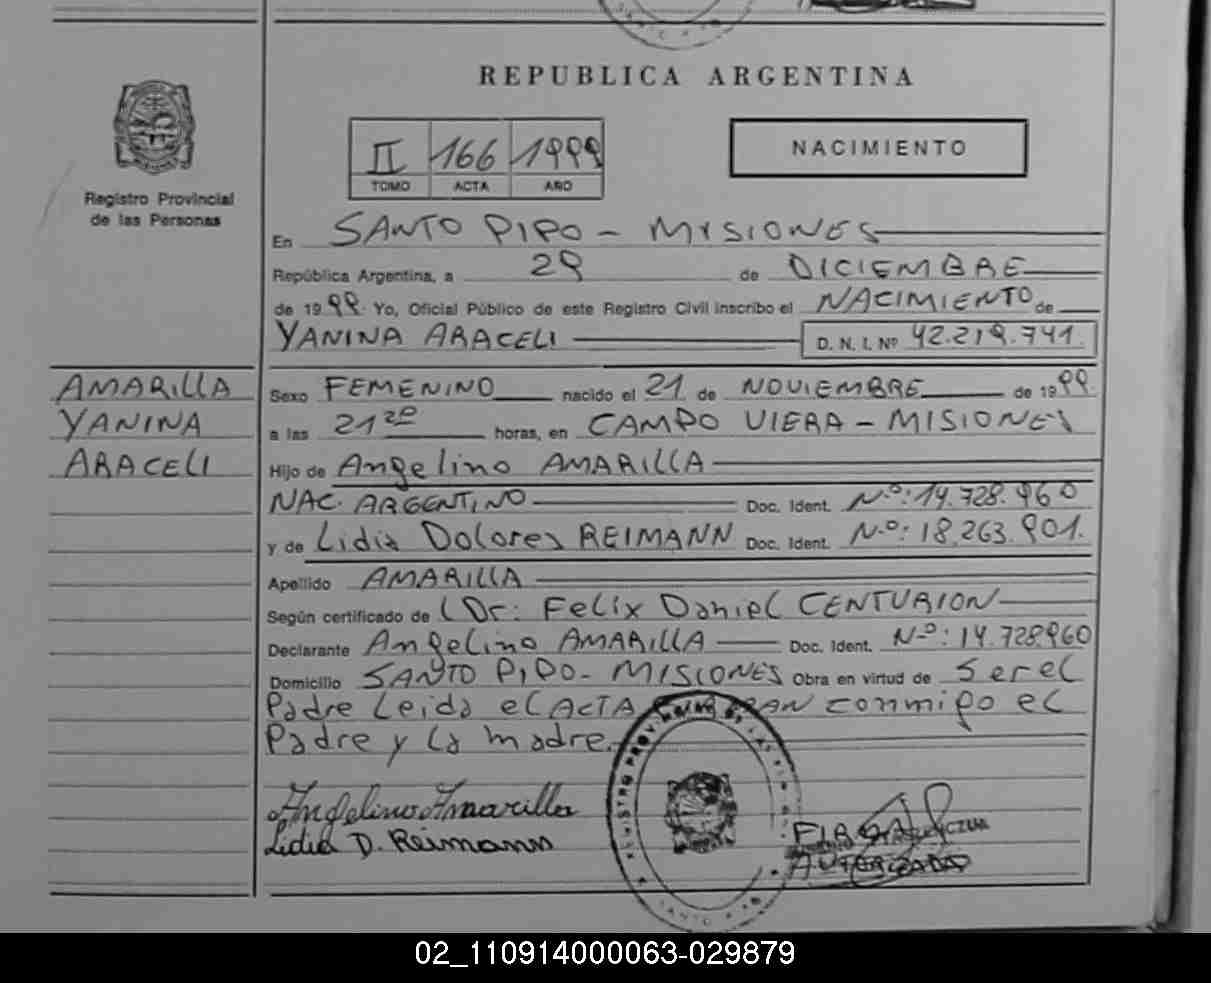 REPUBLICA ARGENTINA
II 166 1999
TOMO ACTA AÑO
NACIMIENTO
Registro Provincial
de las Personas
En SANTO PIPO - MISIONES
República Argentina, a 29 de DICIEMBRE
de 1999 Yo, Oficial Público de este Registro Civil inscribo el NACIMIENTO de
YANINA ARACELI D. N. I. Nº 42.219.741.
AMARILLA
YANINA
ARACELI
Sexo FEMENINO nacido el 21 de NOVIEMBRE de 1999.
a las 21 20 horas, en CAMPO VIERA - MISIONES
Hijo de Angelino AMARILLA
NAC. ARGENTINO Doc. Ident. N-º: 14.728.960
y de Lidia Dolores REIMANN Doc. Ident. N-º: 18.263.901.
Apellido AMARILLA
Según certificado de Dr: Felix Daniel CENTURION
Declarante Angelino AMARILLA Doc. Ident. N-º: 14.728960
Domicilio SANTO PIPO - MISIONES Obra en virtud de ser el
Padre Leida el ACTA conmigo el
Padre y la madre.
Angelino Amarilla
Lidia D. Reimann
REGISTRO PROVINCIAL DE LAS
SANTO
FIRMA
AUTORIZADA
02_110914000063-029879